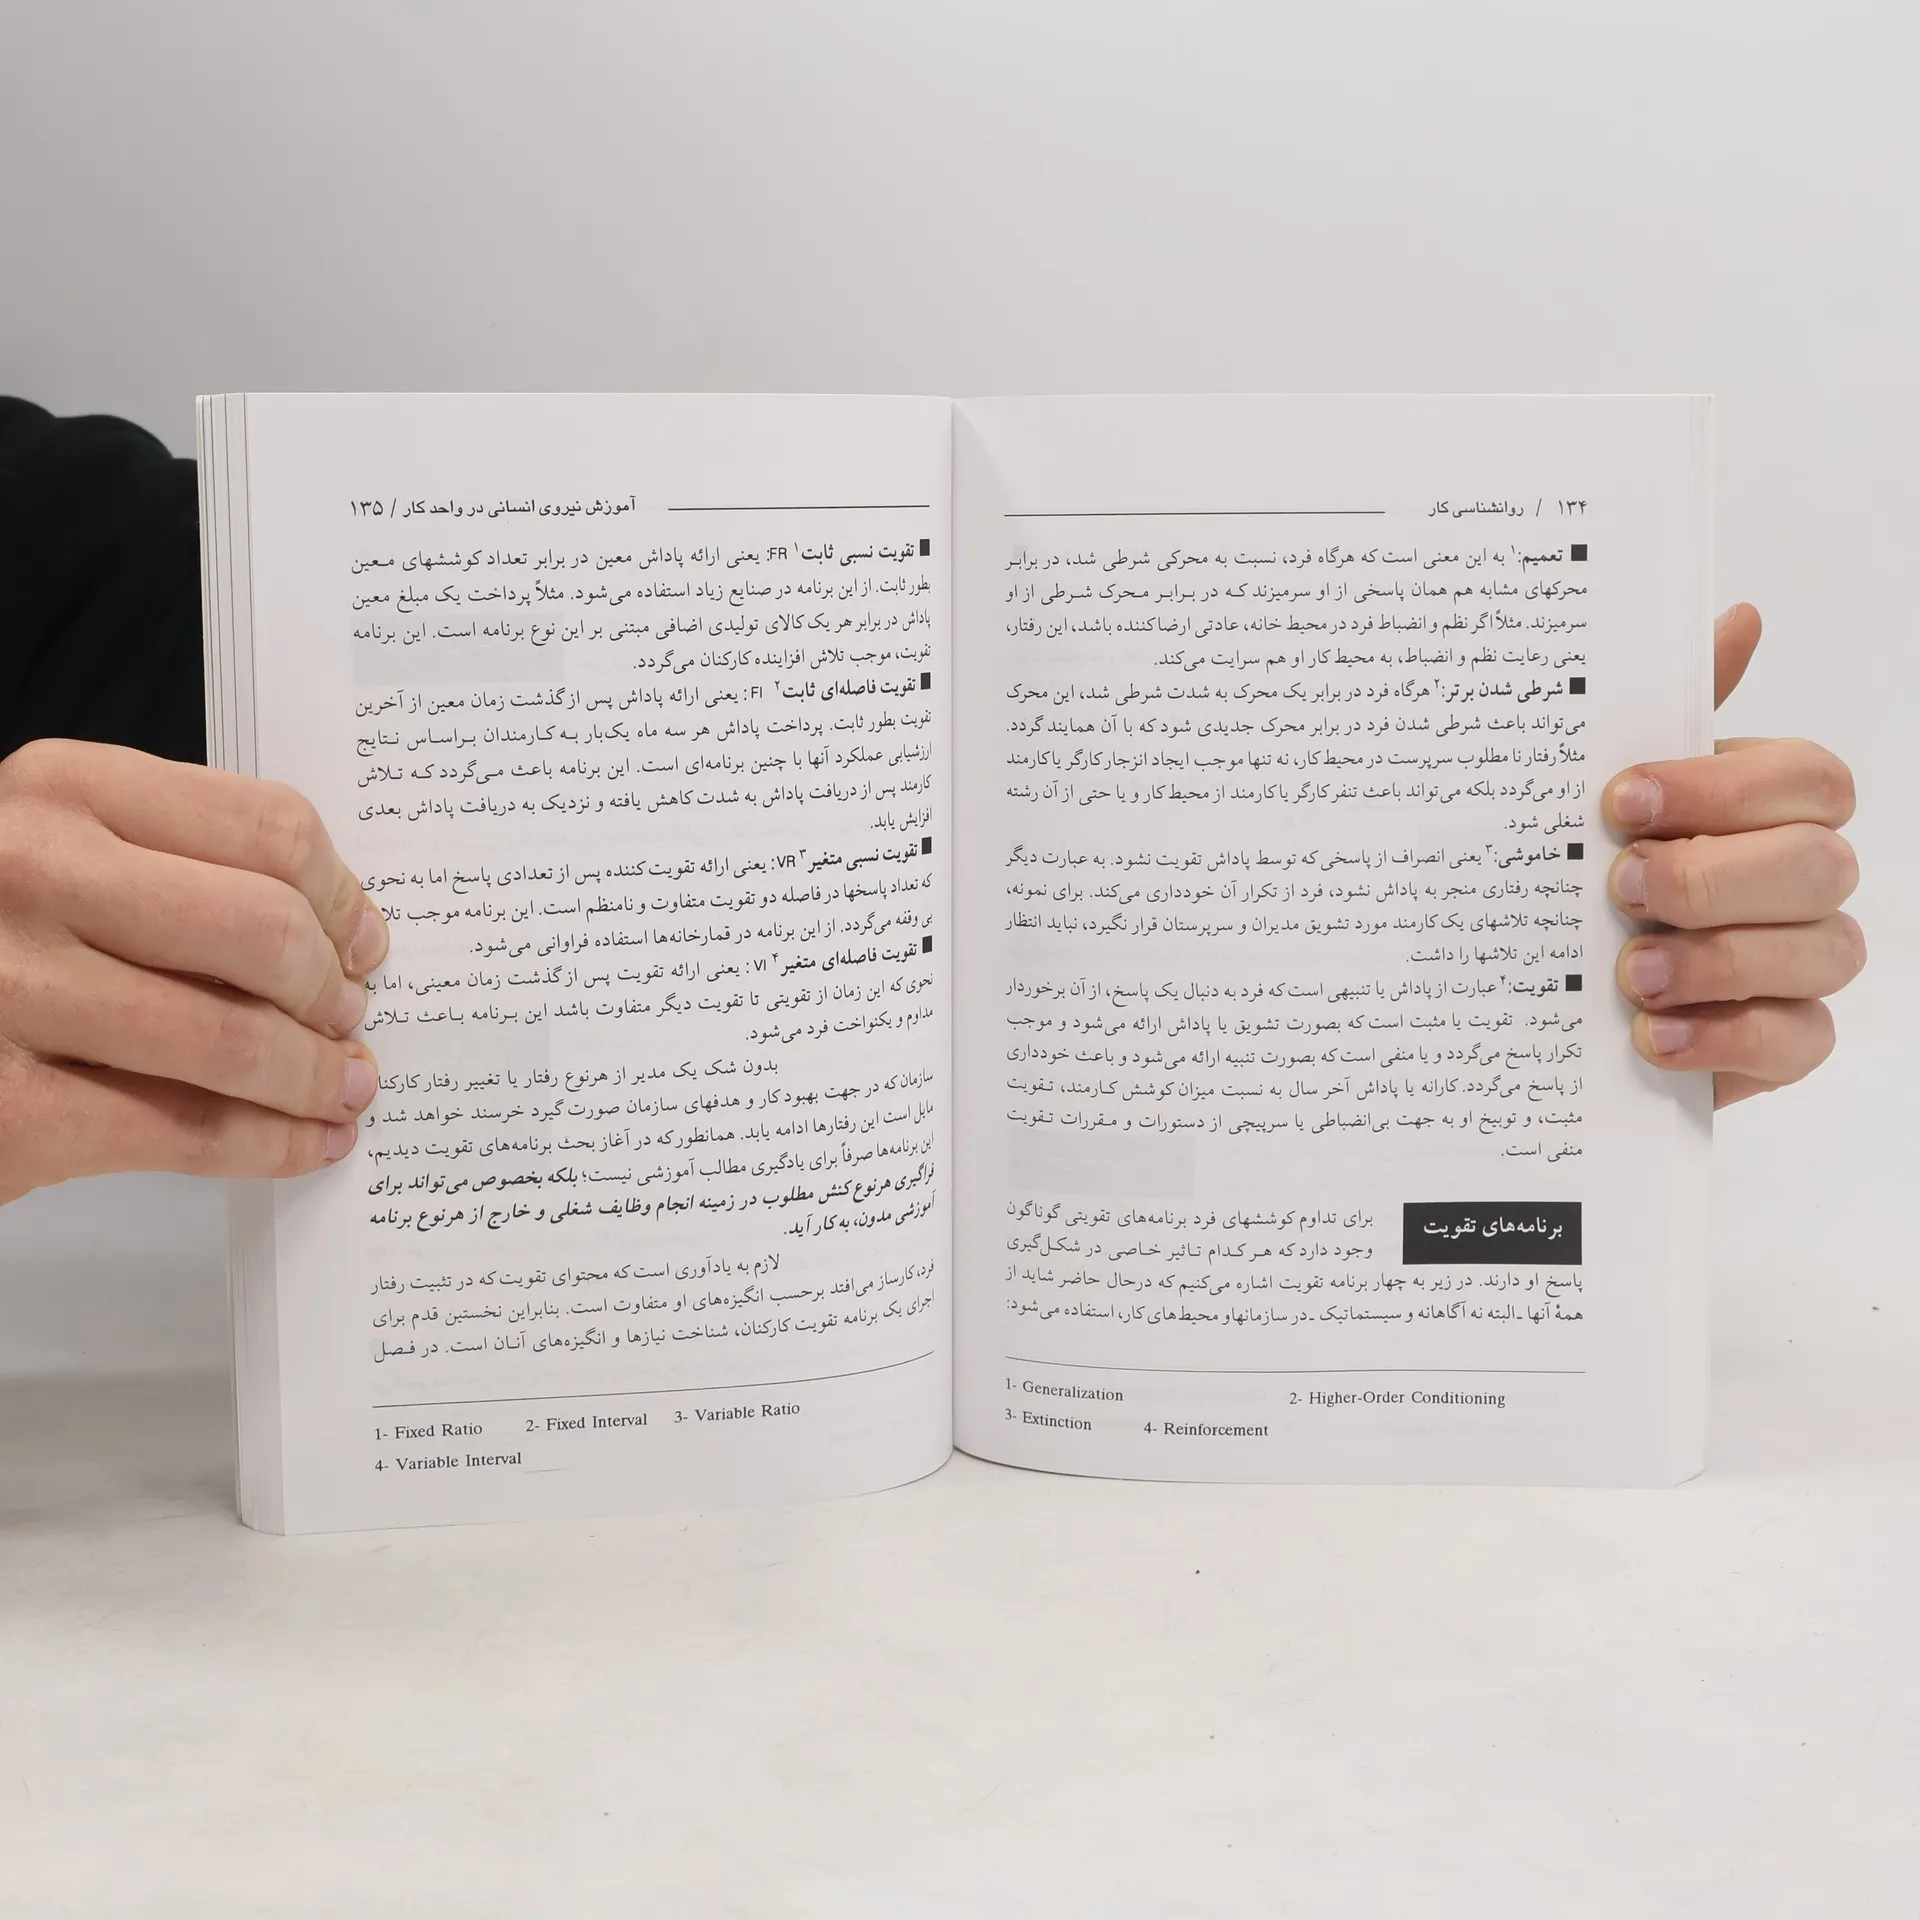 ۱۳۴ / روانشناسی کار
■ تعمیم:۱ به این معنی است که هرگاه فرد، نسبت به محرکی شرطی شد، در برابر
محرکهای مشابه هم همان پاسخی از او سرمیزند که در برابر محرک شرطی از او
سرمیزند. مثلاً اگر نظم و انضباط فرد در محیط خانه، عادتی ارضاکننده باشد، این رفتار،
یعنی رعایت نظم و انضباط، به محیط کار او هم سرایت می‌کند.
■ شرطی شدن برتر:۲ هرگاه فرد در برابر یک محرک به شدت شرطی شد، این محرک
می‌تواند باعث شرطی شدن فرد در برابر محرک جدیدی شود که با آن همایند گردد.
مثلاً رفتار نا مطلوب سرپرست در محیط کار، نه تنها موجب ایجاد انزجار کارگر یا کارمند
از او می‌گردد بلکه می‌تواند باعث تنفر کارگر یا کارمند از محیط کار و یا حتی از آن رشته
شغلی شود.
■ خاموشی:۳ یعنی انصراف از پاسخی که توسط پاداش تقویت نشود. به عبارت دیگر
چنانچه رفتاری منجر به پاداش نشود، فرد از تکرار آن خودداری می‌کند. برای نمونه،
چنانچه تلاشهای یک کارمند مورد تشویق مدیران و سرپرستان قرار نگیرد، نباید انتظار
ادامه این تلاشها را داشت.
■ تقویت:۴ عبارت از پاداش یا تنبیهی است که فرد به دنبال یک پاسخ، از آن برخوردار
می‌شود. تقویت یا مثبت است که بصورت تشویق یا پاداش ارائه می‌شود و موجب
تکرار پاسخ می‌گردد و یا منفی است که بصورت تنبیه ارائه می‌شود و باعث خودداری
از پاسخ می‌گردد. کارانه یا پاداش آخر سال به نسبت میزان کوشش کارمند، تقویت
مثبت، و توبیخ او به جهت بی‌انضباطی یا سرپیچی از دستورات و مقررات تقویت
منفی است.
برنامه‌های تقویت
برای تداوم کوششهای فرد برنامه‌های تقویتی گوناگون
وجود دارد که هر کدام تاثیر خاصی در شکل‌گیری
پاسخ او دارند. در زیر به چهار برنامه تقویت اشاره می‌کنیم که درحال حاضر شاید از
همهٔ آنها ـ البته نه آگاهانه و سیستماتیک ـ در سازمانهاو محیط‌های کار، استفاده می‌شود:
1- Generalization 2- Higher-Order Conditioning
3- Extinction 4- Reinforcement
آموزش نیروی انسانی در واحد کار / ۱۳۵
■ تقویت نسبی ثابت۱ FR: یعنی ارائه پاداش معین در برابر تعداد کوششهای معین
بطور ثابت. از این برنامه در صنایع زیاد استفاده می‌شود. مثلاً پرداخت یک مبلغ معین
پاداش در برابر هر یک کالای تولیدی اضافی مبتنی بر این نوع برنامه است. این برنامه
تقویت، موجب تلاش افزاینده کارکنان می‌گردد.
■ تقویت فاصله‌ای ثابت۲ FI: یعنی ارائه پاداش پس از گذشت زمان معین از آخرین
تقویت بطور ثابت. پرداخت پاداش هر سه ماه یک‌بار به کارمندان براساس نتایج
ارزشیابی عملکرد آنها با چنین برنامه‌ای است. این برنامه باعث می‌گردد که تلاش
کارمند پس از دریافت پاداش به شدت کاهش یافته و نزدیک به دریافت پاداش بعدی
افزایش یابد.
■ تقویت نسبی متغیر۳ VR: یعنی ارائه تقویت کننده پس از تعدادی پاسخ اما به نحوی
که تعداد پاسخها در فاصله دو تقویت متفاوت و نامنظم است. این برنامه موجب
بی وقفه می‌گردد. از این برنامه در قمارخانه‌ها استفاده فراوانی می‌شود.
■ تقویت فاصله‌ای متغیر۴ VI: یعنی ارائه تقویت پس از گذشت زمان معینی، اما به
نحوی که این زمان از تقویتی تا تقویت دیگر متفاوت باشد این برنامه باعث تلاش
مداوم و یکنواخت فرد می‌شود.
بدون شک یک مدیر از هرنوع رفتار یا تغییر رفتار
سازمان که در جهت بهبود کار و هدفهای سازمان صورت گیرد خرسند خواهد شد و
مایل است این رفتارها ادامه یابد. همانطورکه در آغاز بحث برنامه‌های تقویت دیدیم،
این برنامه‌ها صرفاً برای یادگیری مطالب آموزشی نیست؛ بلکه بخصوص می‌تواند برای
فراگیری هرنوع کنش مطلوب در زمینه انجام وظایف شغلی و خارج از هرنوع برنامه
آموزشی مدون، به کار آید.
لازم به یادآوری است که محتوای تقویت که در تثبیت رفتار
فرد، کارساز می‌افتد برحسب انگیزه‌های او متفاوت است. بنابراین نخستین قدم برای
اجرای یک برنامه تقویت کارکنان، شناخت نیازها و انگیزه‌های آنان است. در فصل
1- Fixed Ratio 2- Fixed Interval 3- Variable Ratio
4- Variable Interval